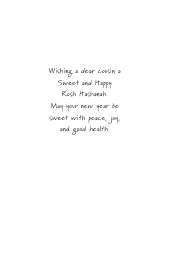 Wishing a dear cousin a
Sweet and Happy
Rosh Hashanah.
May your new year be
sweet with peace, joy,
and good health.